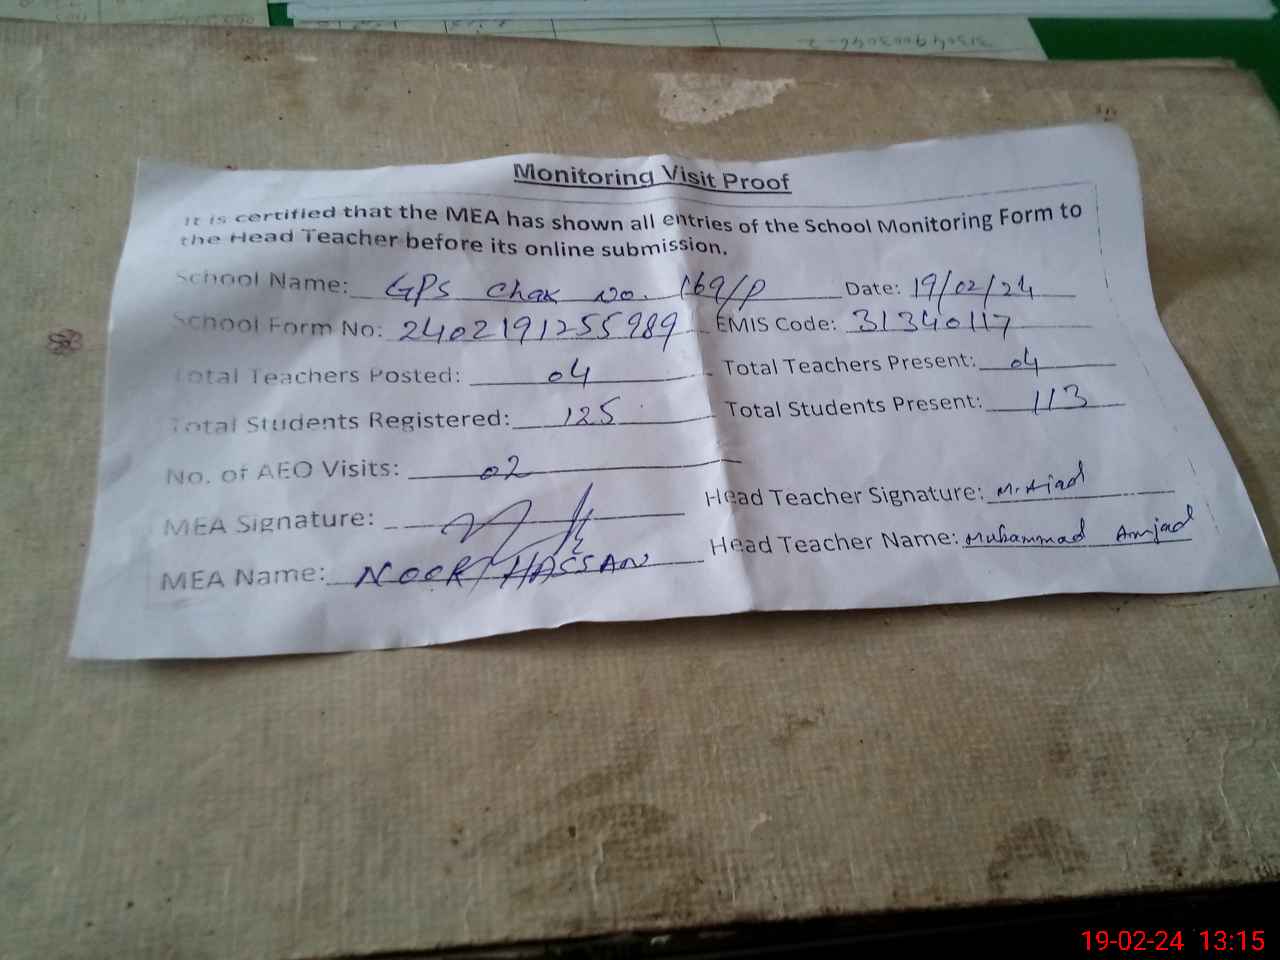 Monitoring Visit Proof
It is certified that the MEA has shown all entries of the School Monitoring Form to
the Head Teacher before its online submission.
School Name: GPS Chak No. 169/P Date: 19/02/24
School Form No: 2402191255989 EMIS Code: 31340117
Total Teachers Posted: 04 Total Teachers Present: 04
Total Students Registered: 125 Total Students Present: 113
No. of AEO Visits: 02
MEA Signature: Head Teacher Signature:
MEA Name: NOOR HASSAN Head Teacher Name: Muhammad Amjad
19-02-24 13:15